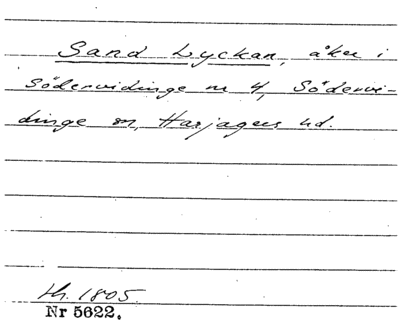 Sand Lyckan, åker i
Södervidinge nr 4, Södervi-
dinge sn, Harjagers hd.
th. 1805.
Nr 5622.